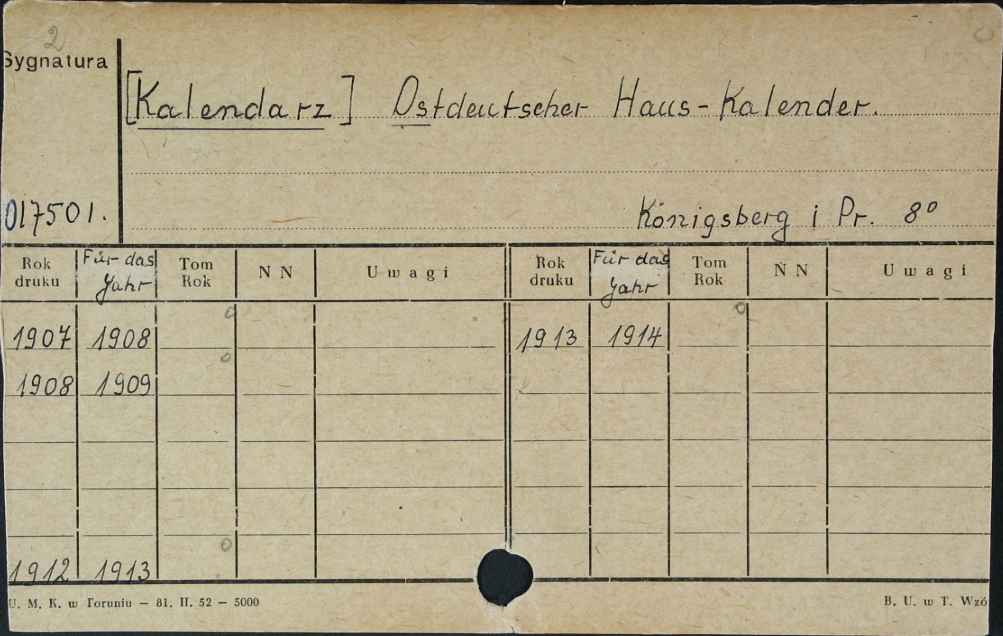 2
Sygnatura
[Kalendarz] Ostdeutscher Haus-Kalender.
017501.
Königsberg i Pr. 8°
Rok druku Für das Jahr Tom Rok N N Uwagi Rok druku Für das Jahr Tom Rok N N Uwagi
1907 1908 0 1913 1914 0
1908 1909 0
1912 1913 0
U. M. K. w Toruniu — 81. II. 52 — 5000
B. U. w T. Wzó